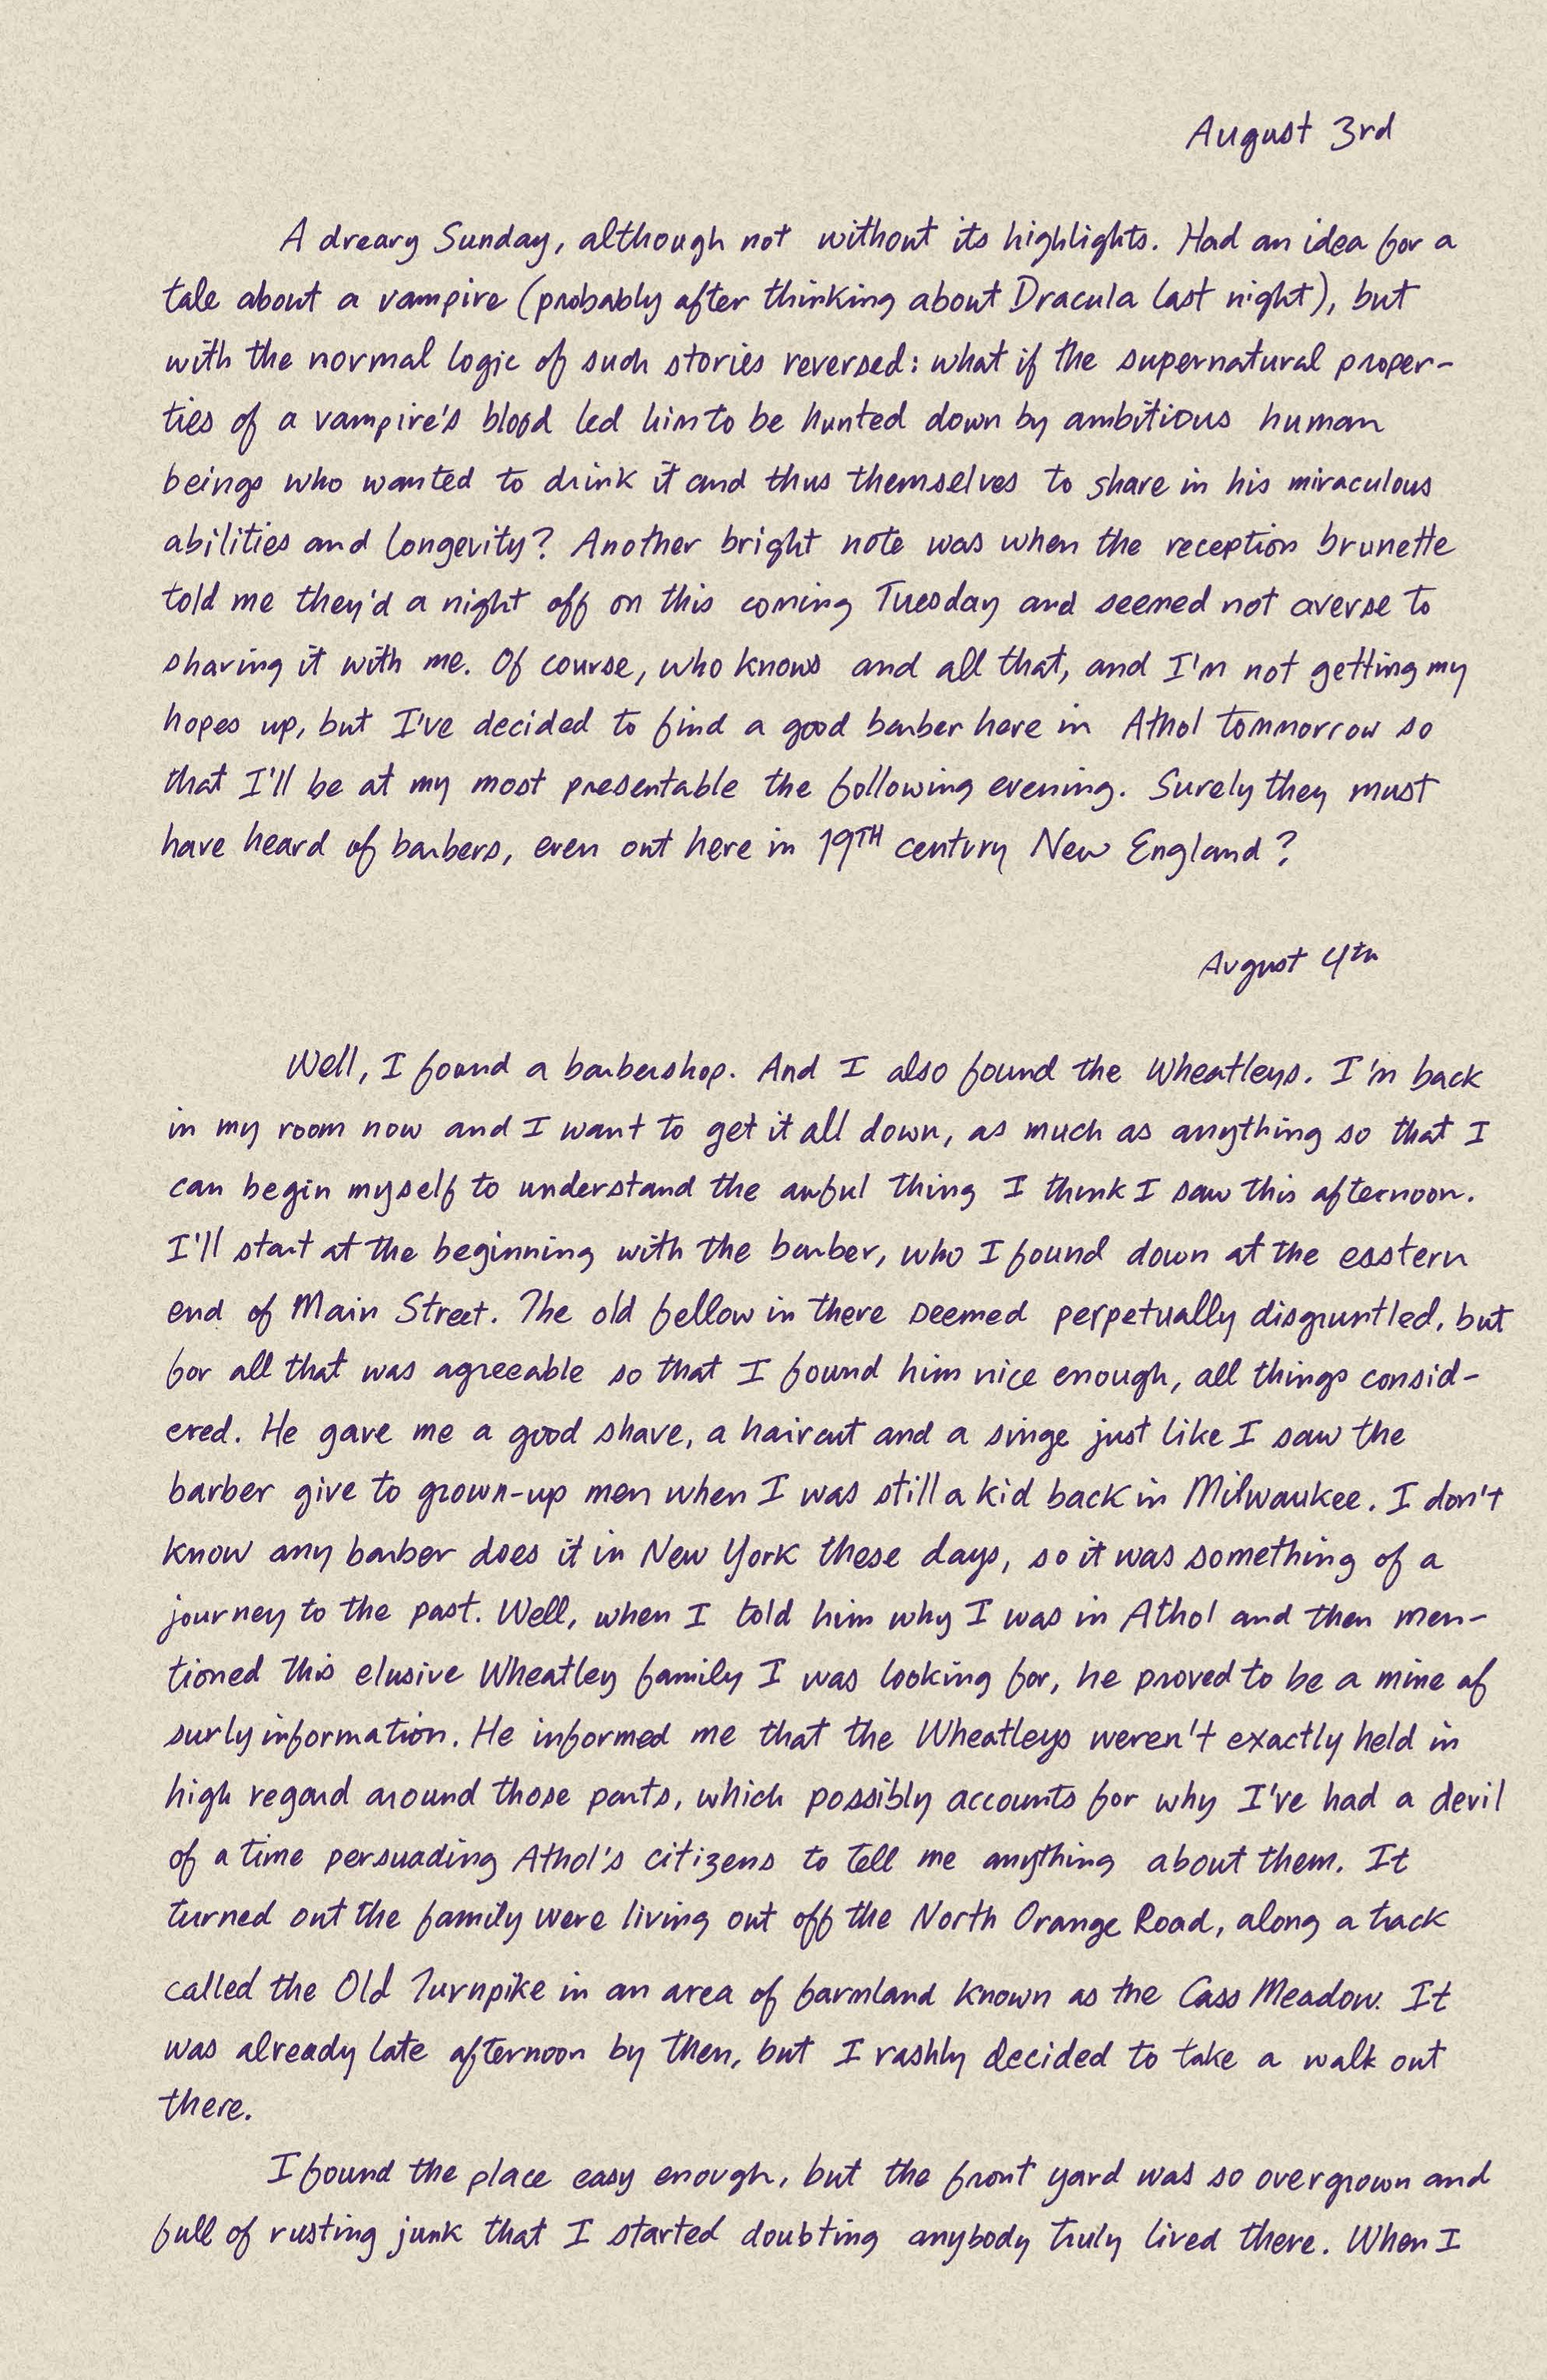 August 3rd
A dreary Sunday, although not without its highlights. Had an idea for a
tale about a vampire (probably after thinking about Dracula last night), but
with the normal logic of such stories reversed: what if the supernatural proper-
ties of a vampire's blood led him to be hunted down by ambitious human
beings who wanted to drink it and thus themselves to share in his miraculous
abilities and longevity? Another bright note was when the reception brunette
told me they'd a night off on this coming Tuesday and seemed not averse to
sharing it with me. Of course, who knows and all that, and I'm not getting my
hopes up, but I've decided to find a good barber here in Athol tommorrow so
that I'll be at my most presentable the following evening. Surely they must
have heard of barbers, even out here in 19TH century New England?
August 4th
Well, I found a barbershop. And I also found the Wheatleys. I'm back
in my room now and I want to get it all down, as much as anything so that I
can begin myself to understand the awful thing I think I saw this afternoon.
I'll start at the beginning with the barber, who I found down at the eastern
end of Main Street. The old fellow in there seemed perpetually disgruntled, but
for all that was agreeable so that I found him nice enough, all things consid-
ered. He gave me a good shave, a haircut and a singe just like I saw the
barber give to grown-up men when I was still a kid back in Milwaukee. I don't
know any barber does it in New York these days, so it was something of a
journey to the past. Well, when I told him why I was in Athol and then men-
tioned this elusive Wheatley family I was looking for, he proved to be a mine of
surly information. He informed me that the Wheatleys weren't exactly held in
high regard around those parts, which possibly accounts for why I've had a devil
of a time persuading Athol's citizens to tell me anything about them. It
turned out the family were living out off the North Orange Road, along a track
called the Old Turnpike in an area of farmland known as the Cass Meadow. It
was already late afternoon by then, but I rashly decided to take a walk out
there.
I found the place easy enough, but the front yard was so overgrown and
full of rusting junk that I started doubting anybody truly lived there. When I